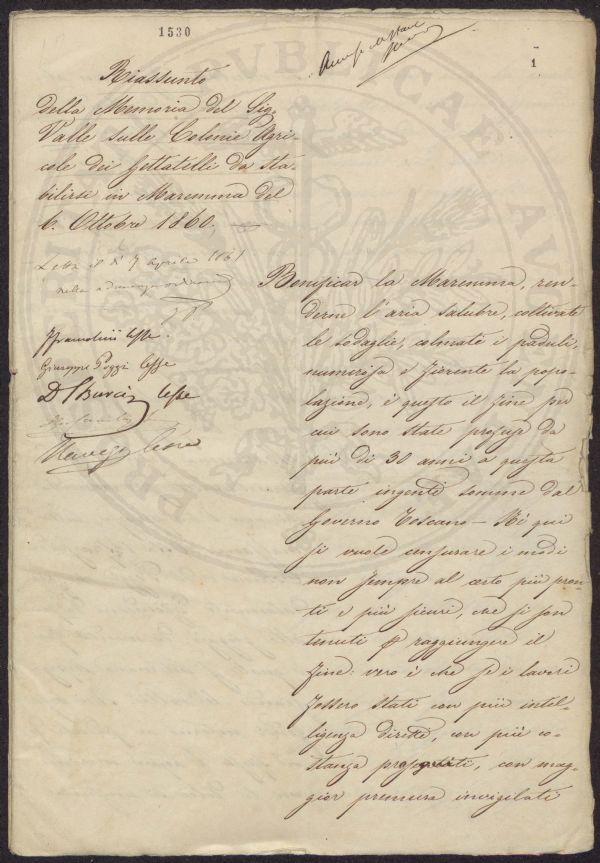 1530
1
Riassunto
della Memoria del Sig.
Valle sulle Colonie Agri-
cole dei Gettatelli da sta-
bilirsi in Maremma del
6. Ottobre 1860.
Letta il dì 7 Aprile 1861
nella adunanza ordinaria
Giuseppe Pozzi
D. Burci
Bonificar la Maremma, ren-
derne l'aria salubre, coltivate
le sodaglie, colmate i paduli,
numerosa e fiorente la popo-
lazione, è questo il fine per
cui sono state profuse da
più di 30 anni a questa
parte ingenti somme dal
Governo Toscano - Nè qui
si vuole censurare i modi
non sempre al certo più pron-
ti e più sicuri, che si son
tenuti p raggiungere il
fine: vero è che se i lavori
fossero stati con più intel-
ligenza diretti, con più co-
stanza proseguiti, con mag-
gior premura invigilati